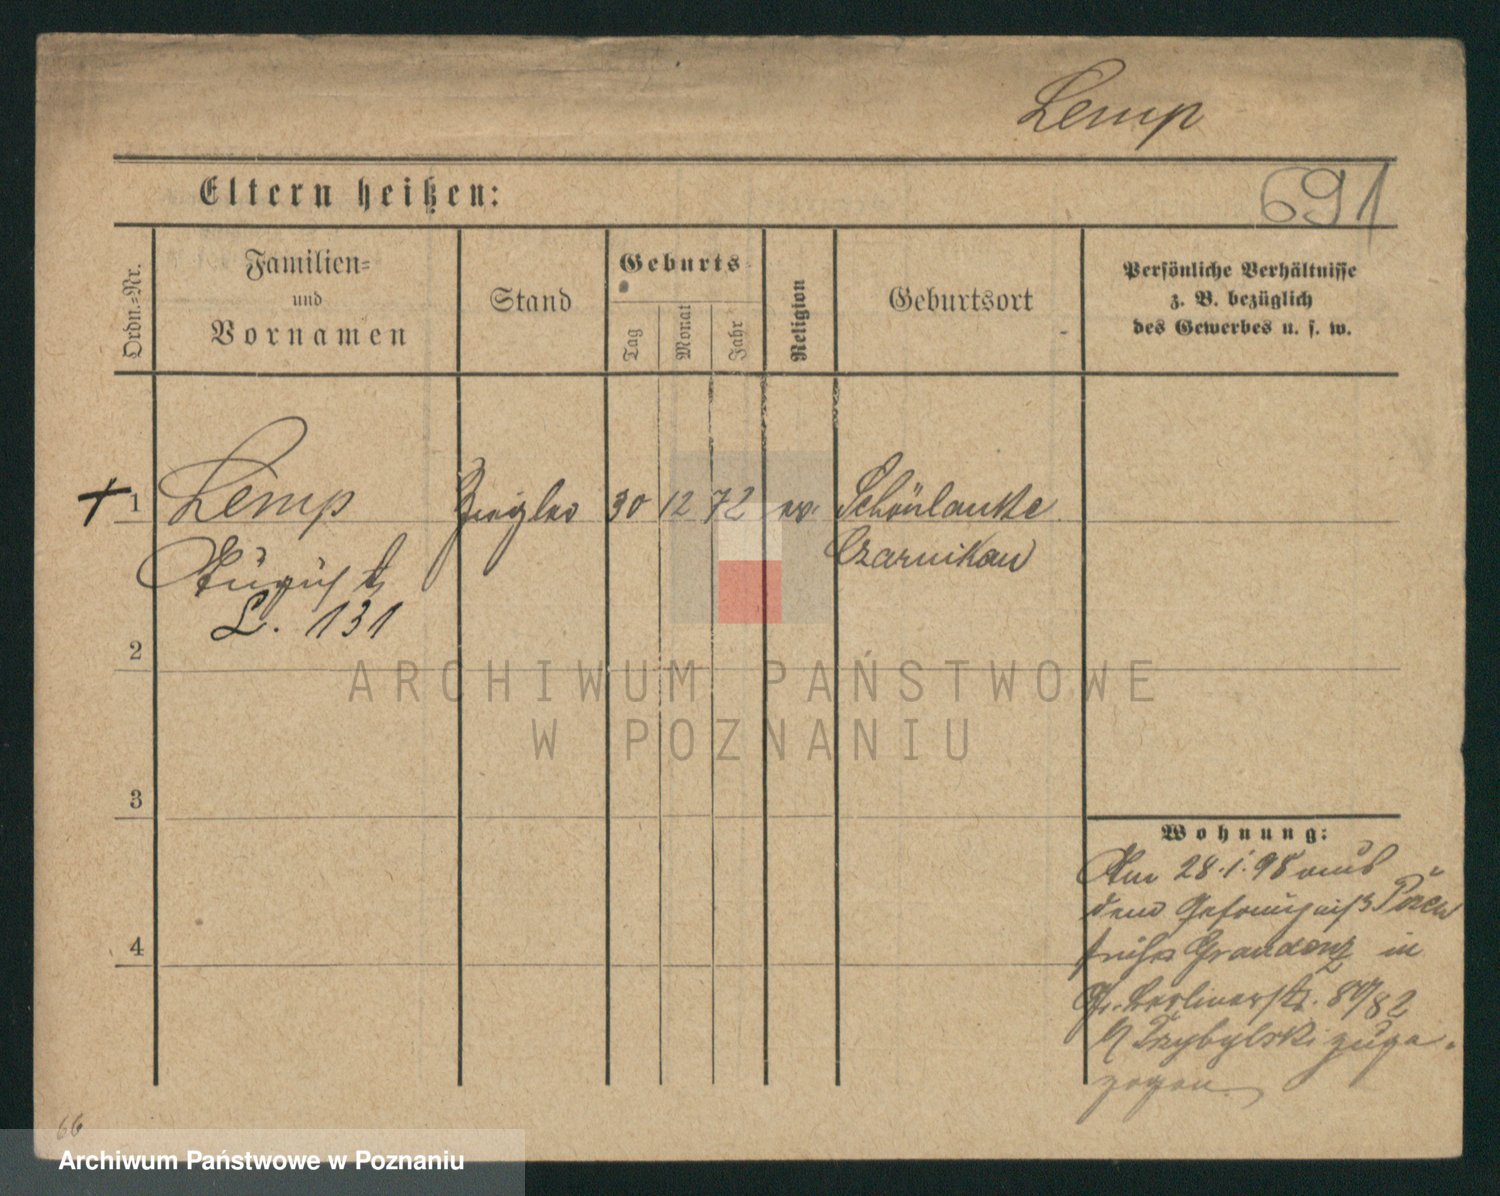 Lemp
Eltern heißen:
691
Ordn.=Nr.
Familien=
und
Vornamen
Stand
Geburts
Tag
Monat
Jahr
Religion
Geburtsort
Persönliche Verhältnisse
z. B. bezüglich
des Gewerbes u. s. w.
+ 1 Lemp Ziegler 30 12 72 ev. Schönlanke
August Czarnikau
L. 131
2
3
4
Wohnung:
Am 28.1.98 aus
dem Gefängniß Posen
früher Graudenz in
Gr. Berlinerstr. 80/82
Przybylski zuge-
zogen
66
ARCHIWUM PAŃSTWOWE
W POZNANIU
Archiwum Państwowe w Poznaniu